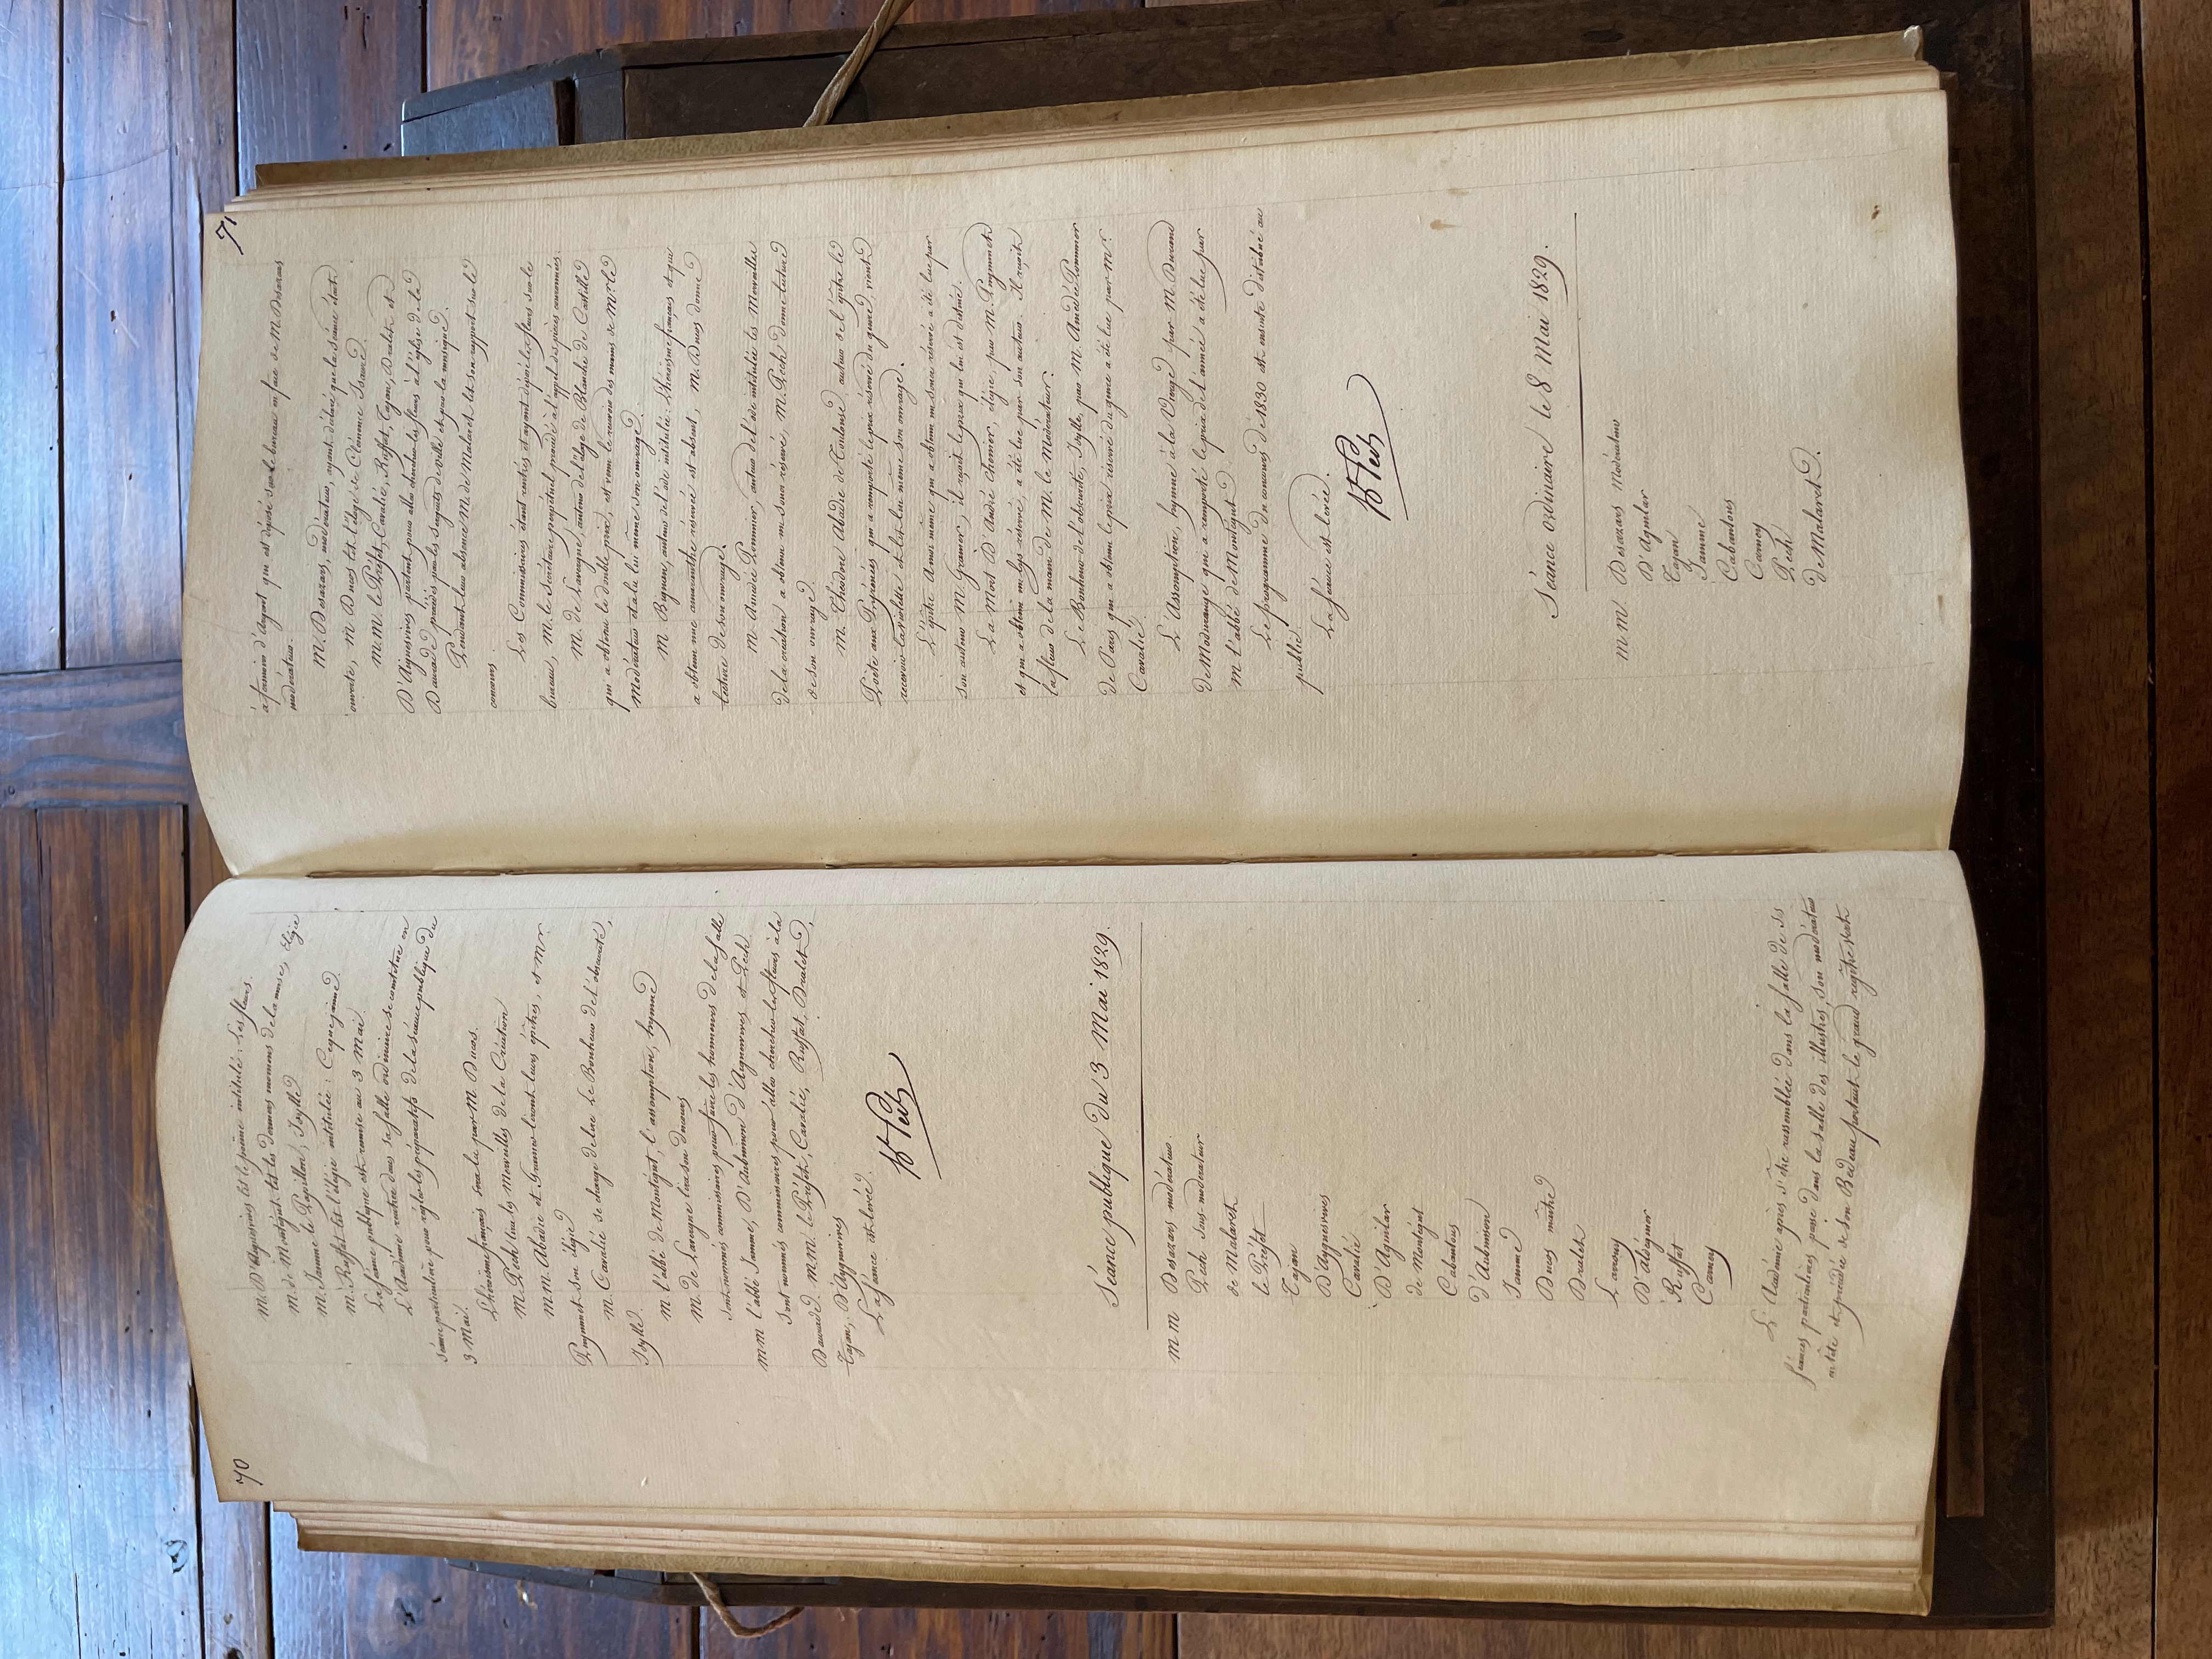 70
M. D'Aiguesvives lit le poëme intitulé: Les fleurs.
M. de Montégut, lit les derniers momens de la muse, Elégie
M. Jamme le Papillon, Idylle
M. Ruffat lit l'élégie intitulée: Ce que j'aime.
La séance publique est remise au 3 Mai.
L'Académie rentrée dans sa salle ordinaire se constitue en
séance particulière pour régler les préparatifs de la séance publique du
3 Mai.
L'héroïsme français sera lu par M. Ducos.
M. Pech lira les Merveilles de la Création
MM. Abadie et Gramer liront leurs épitres, et Mr.
Peymmet son élégie
M. Cavalié se charge de lire Le Bonheur de l'obscurité,
Idylle.
M l'abbé de Montégut, l'assomption, hymne
M. de Lavergne lira son discours
Sont nommés commissaires pour faire les honneurs de la Salle
MM l'abbé Jamme, D'Aubuisson, D'Aiguesvives et Pech.
Sont nommés commissaires pour aller chercher les fleurs à la
Daurade. M.M. le Préfet, Cavalié, Ruffat, Dralet,
Tajan, D'Aiguesvives
La séance est levée.
Bt Pech
Séance publique du 3 Mai 1829.
MM Desazars modérateur.
Pech sous-modérateur
de Malaret
le Préfet
Tajan
D'Aiguesvives
Cavalié
D'Aguilar
de Montégut
Cabantous
d'Aubuisson
Jamme
Ducos maitre
Dralet
Lavouy
D'aldéguier
Ruffat
Carney
L'Académie après s'être rassemblée dans la salle de ss
séances particulières passe dans la salle des illustres, son modérateur
en tête et précédée de son Bedeau portant le grand registre verte
71
à fermoir d'Argent qui est déposé sur le bureau en face de M. Desazars
modérateur.
M. Desazars, modérateur, ayant déclaré que la séance était
ouverte, M Ducos lit l'éloge de Clémence Isaure.
M.M. le Préfet, Cavalié, Ruffat, Tajan, Dralet et
D'Aiguesvives partent pour aller chercher les fleurs à l'église de la
Daurade, précédés par les sergents de ville et par la musique.
Pendant leur absence M. de Malaret lit son rapport sur le
concours.
Les Commissaires étant rentrés et ayant déposé les fleurs sur le
bureau, M. le Secrétaire perpétuel procède à l'appel des pièces couronnées.
M. de Lavergne, auteur de l'éloge de Blanche de Castille
qui a obtenu le double prix, est venu le recevoir des mains de Mr le
Modérateur et a lu lui même son ouvrage.
M Bignan, auteur de l'ode intitulée: L'héroïsme français et qui
a obtenu une amaranthe réservée est absent, M. Ducos donne
lecture de son ouvrage.
M. Amédée Pommier, auteur de l'ode intitulée les Merveilles
de la création a obtenu un souci réservé, M. Pech donne lecture
de son ouvrage.
M. Théodore Abadie de Toulouse auteur de l'épitre le
Poëte aux Pyrénées qui a remporté le prix réservé du genre, vient
recevoir la violette et lit lui même son ouvrage.
L'épitre A moi même qui a obtenu un souci réservé a été lue par
son auteur M. Gramer, il reçoit le prix qui lui est destiné.
La Mort D'André Chénier, élégie, par M. Peymmet
et qui a obtenu un lys réservé, a été lue par son auteur. Il reçoit
la fleur de la main de M. le Modérateur.
Le Bonheur de l'obscurité, Idylle, par M. Amédée Pommier
de Paris qui a obtenu le prix réservé du genre a été lue par Mr.
Cavalié.
L'Assomption, hymne à la Vierge par M. Durand
de Modurange qui a remporté le prix de l'année a été lue par
M l'abbé de Montégut
Le programme du concours de 1830 est ensuite distribué au
public.
La séance est levée.
Bt Pech
Séance ordinaire le 8 Mai 1829.
MM Desazars modérateur
D'Aguilar
Tajan
Jamme
Cabantous
Carney
Pech
de Malaret.